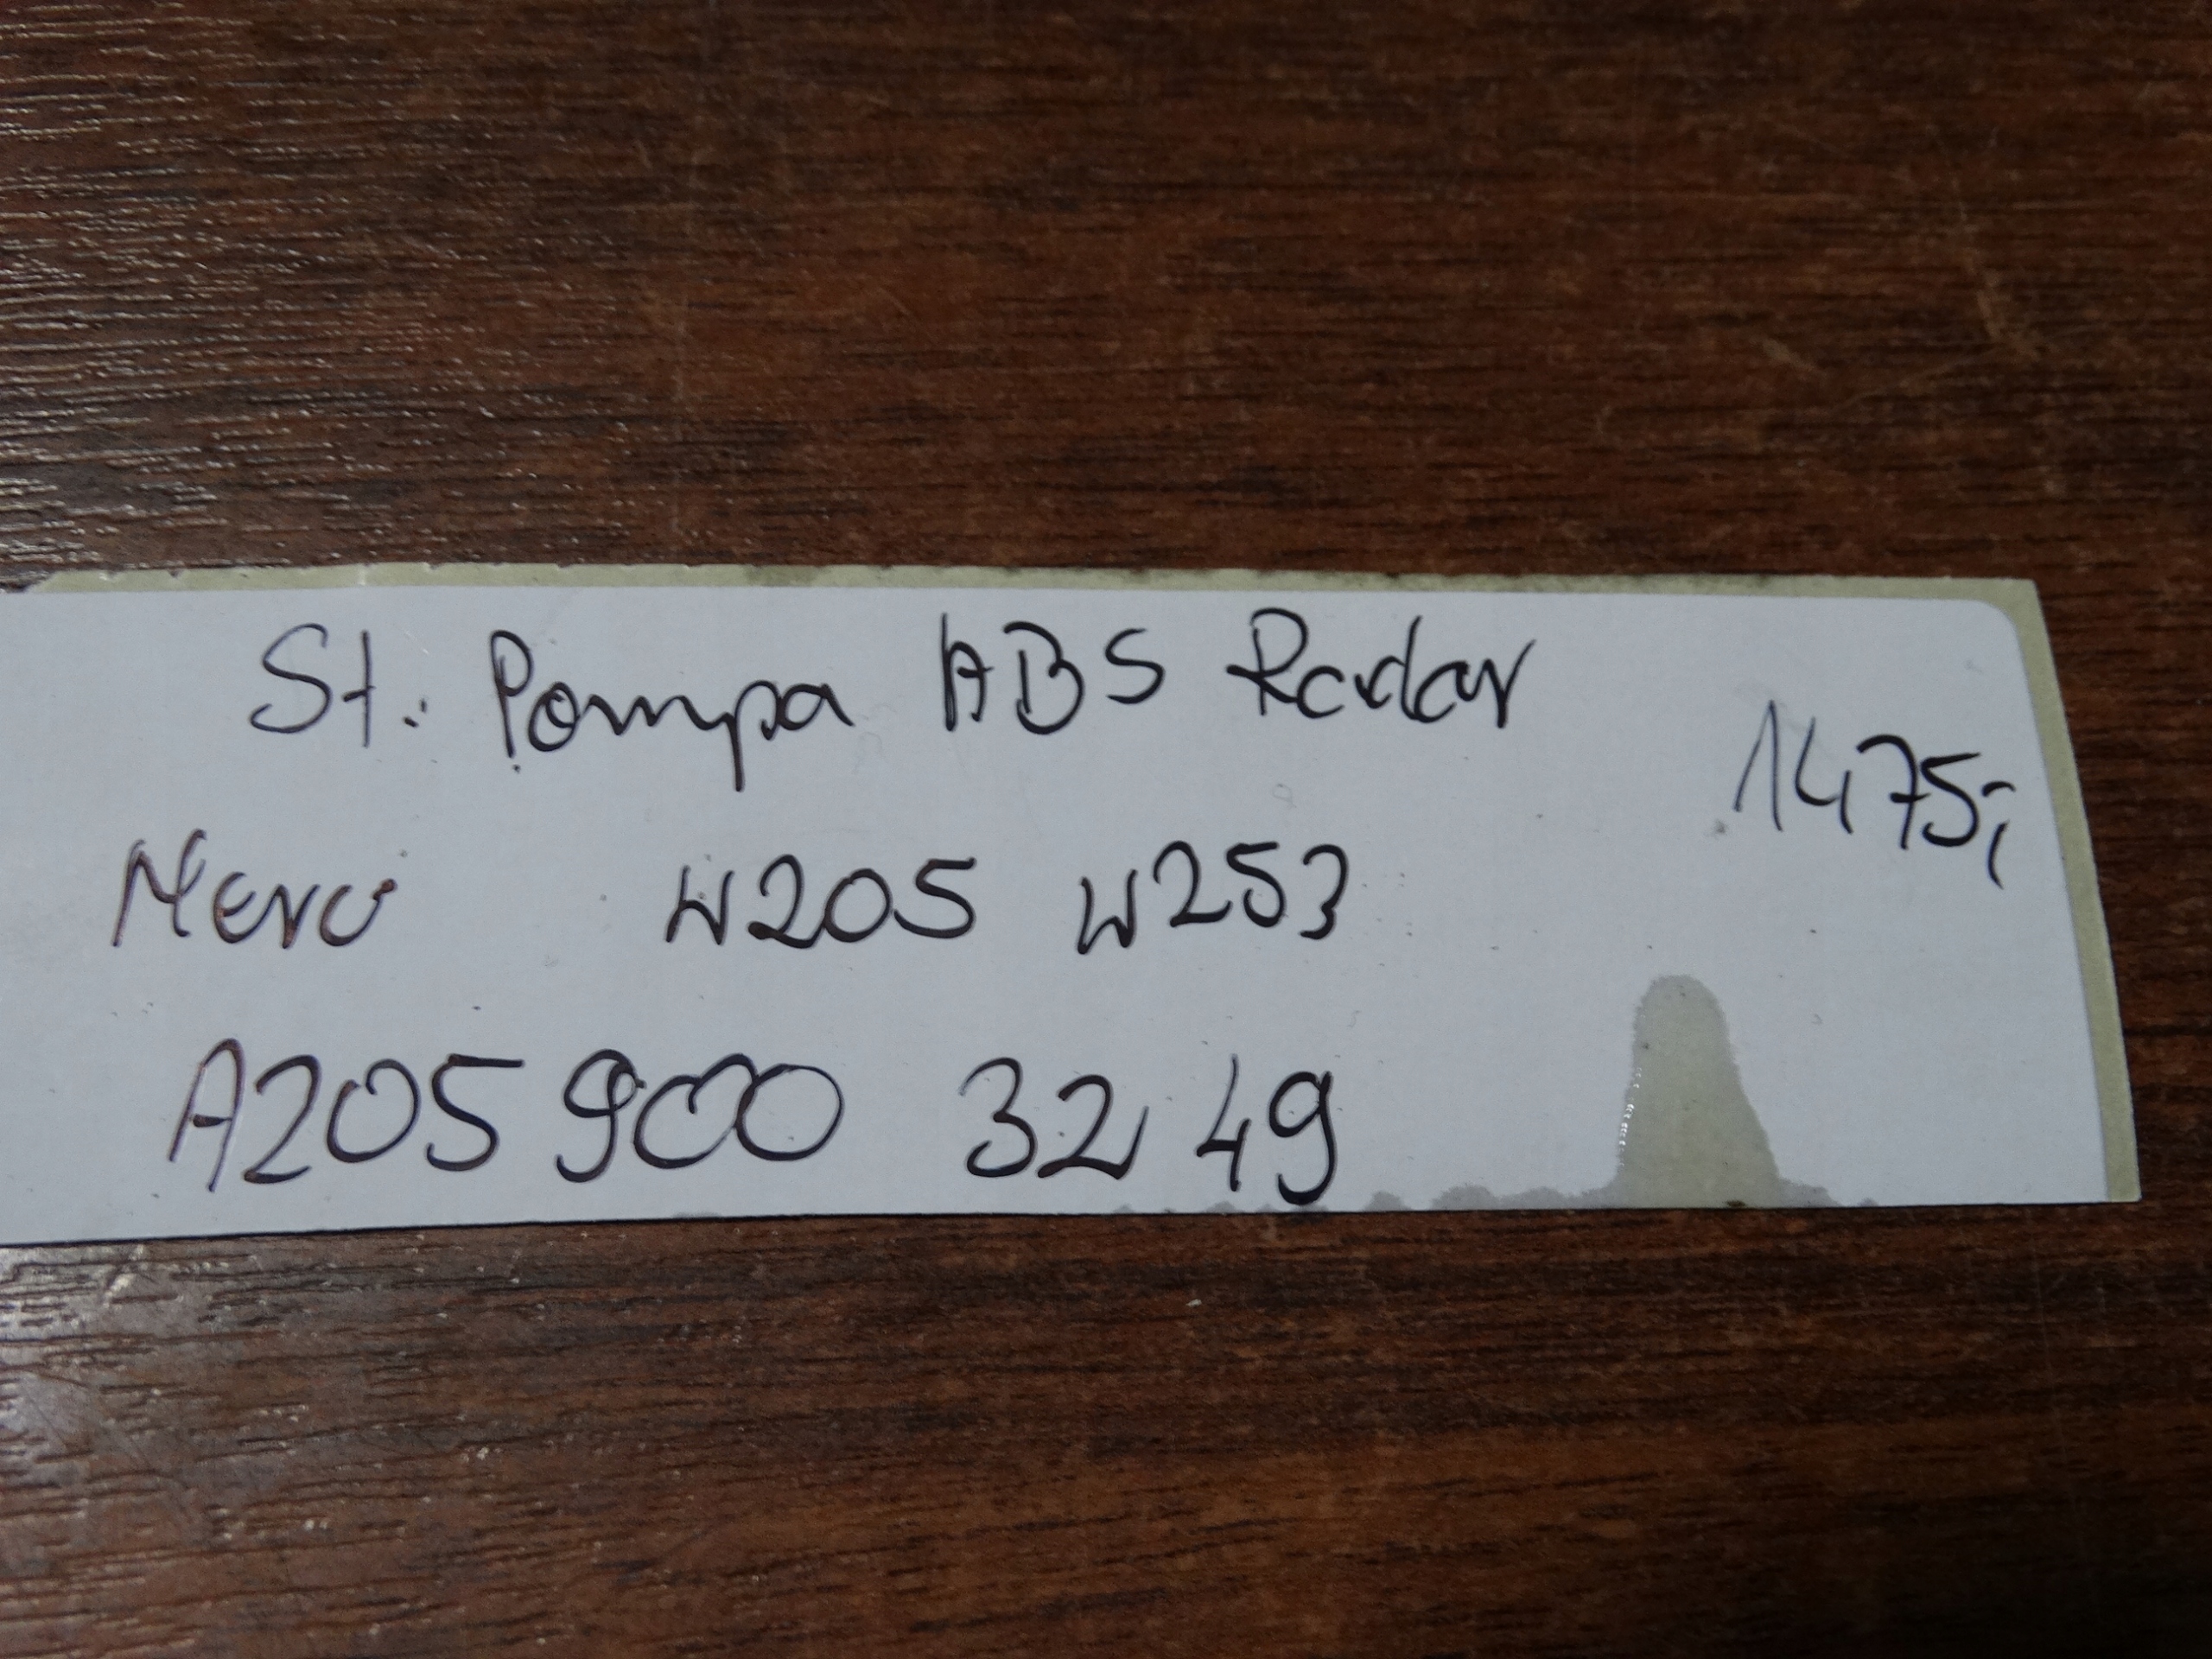 St. Pompa ABS Radar
1475,-
Merc W205 W253
A205 900 32 49